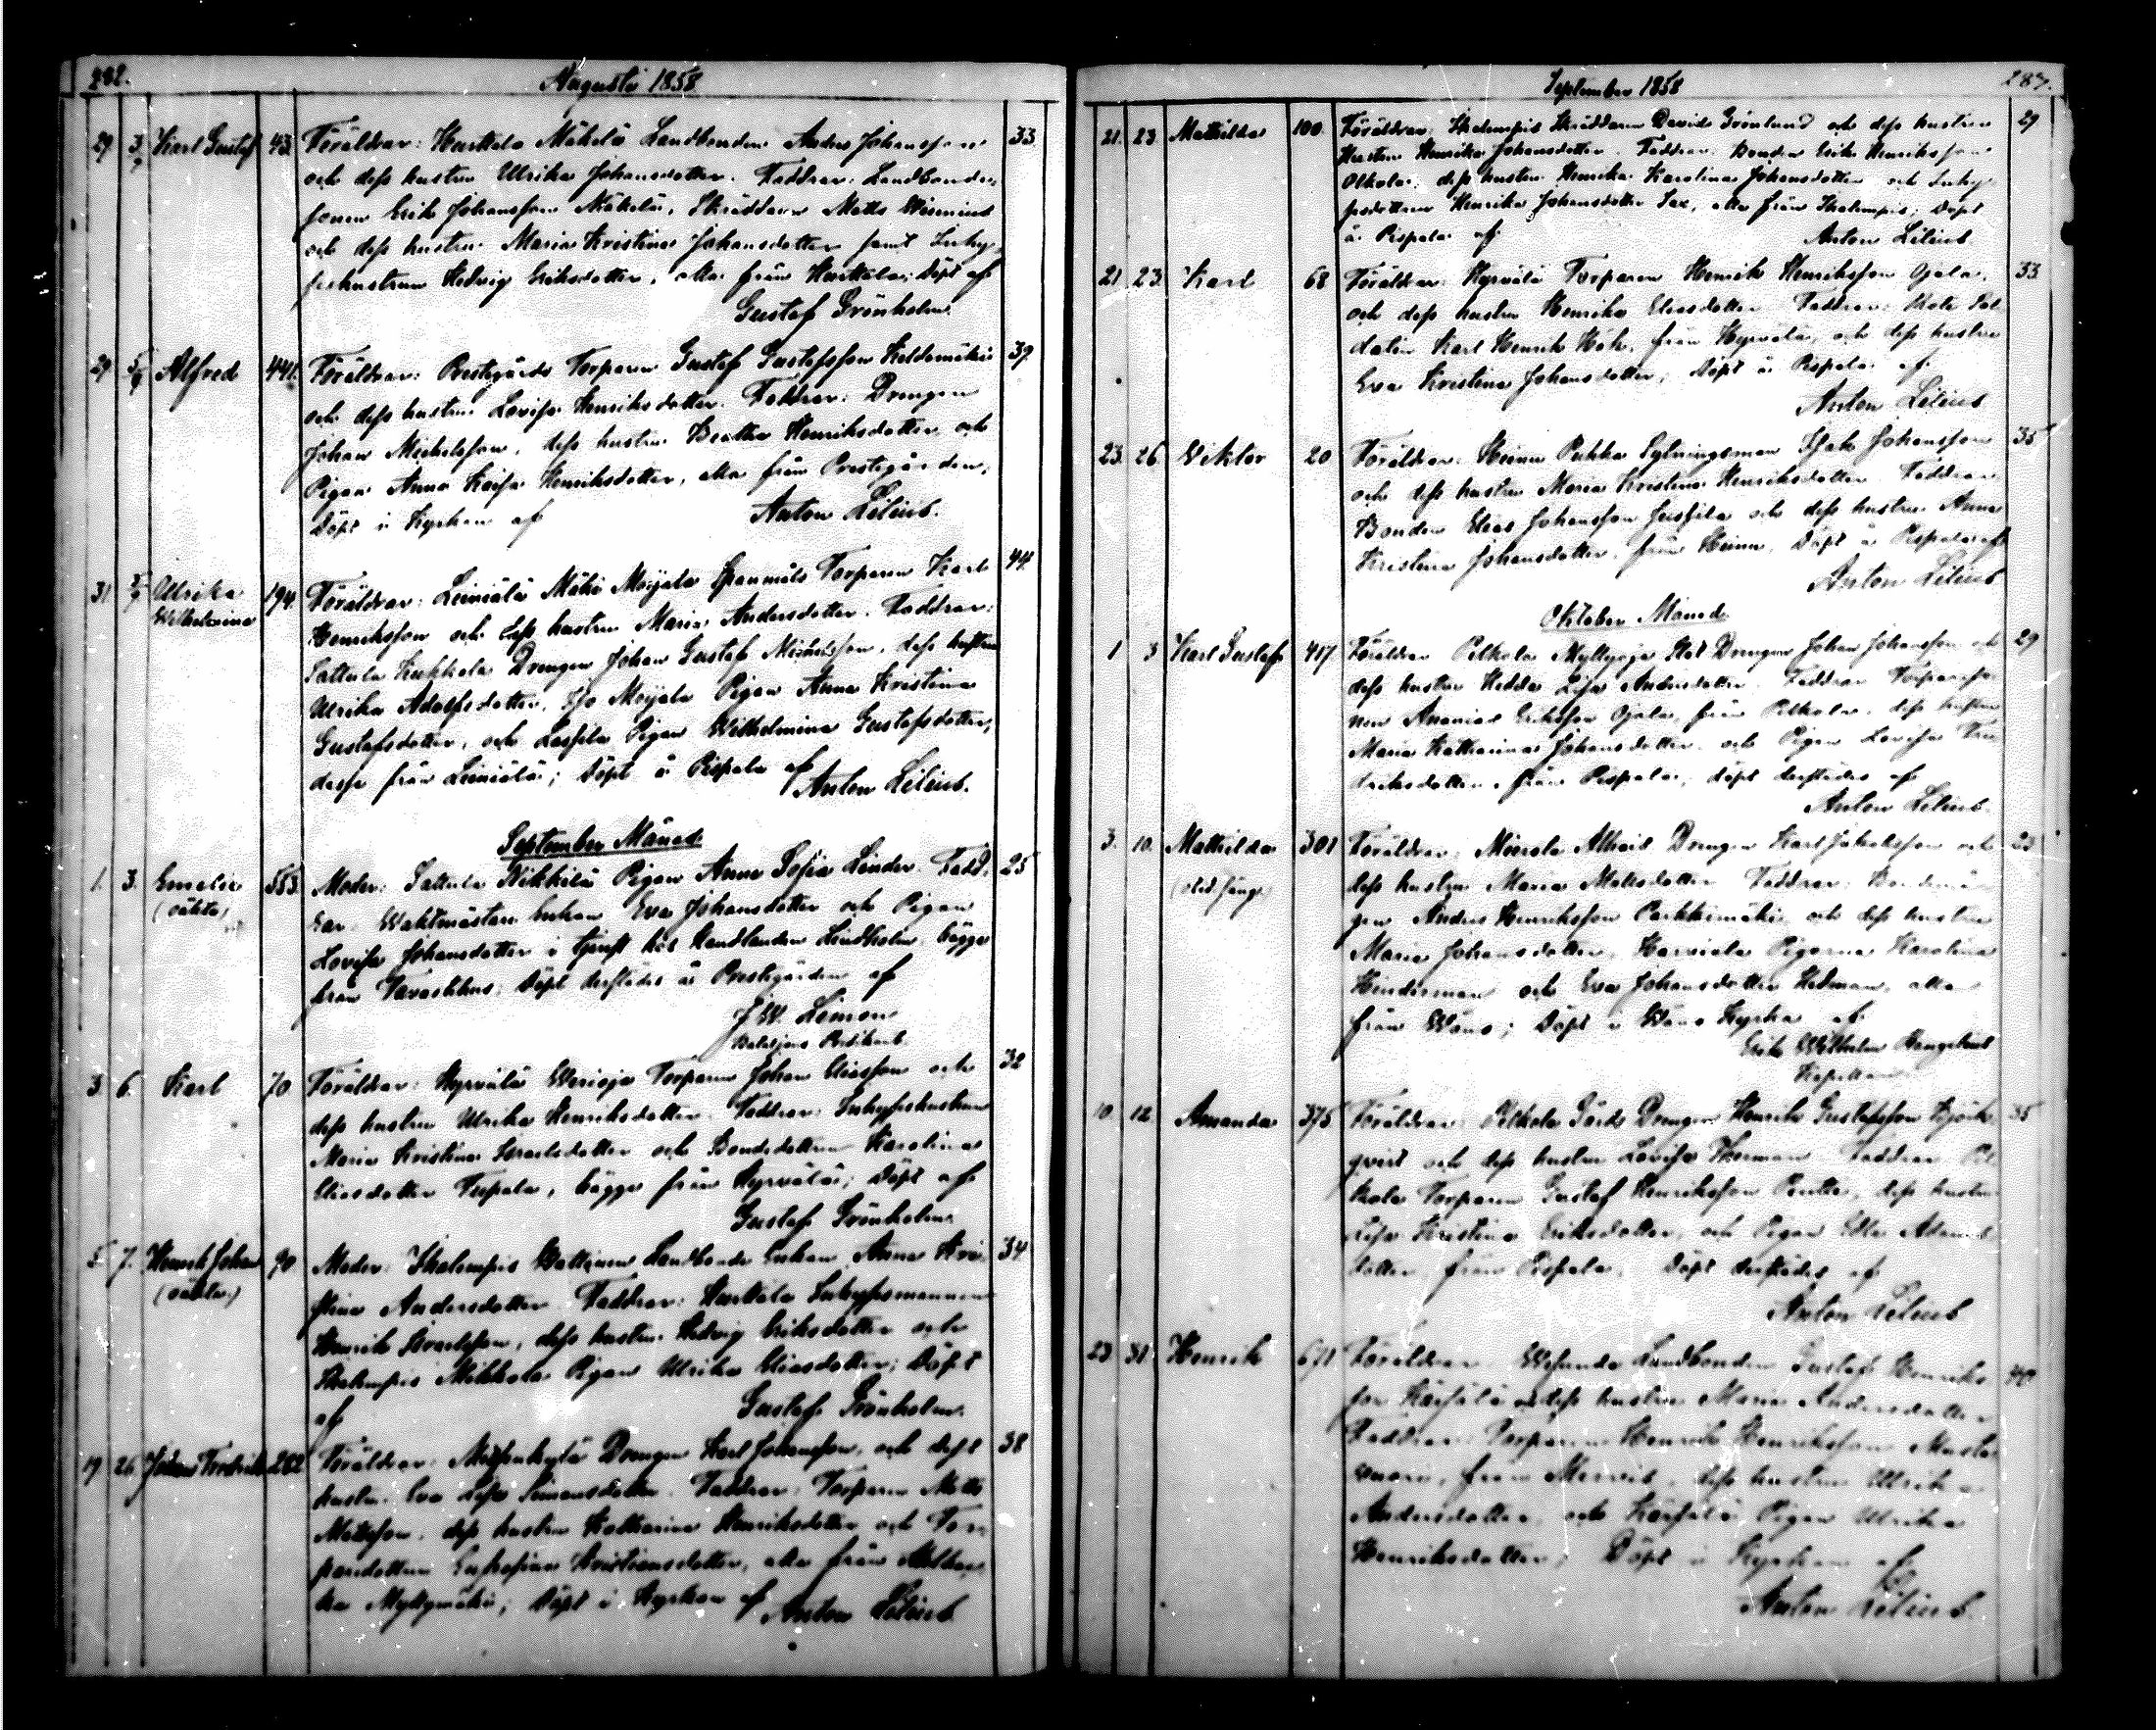 282.
Augusti 1858
29 3/9 Karl Gustaf 43. Föräldrar: Harttala Mäkelä Landbonden Anders Johansson 33
och dess hustru Ulrika Johansdotter. Faddrar: Landbonde-
sonen Erik Johansson Mäkelä, Skräddaren Matts
och dess hustru Maria Kristina Johansdotter samt Inhy-
seshustrun Hedvig Eriksdotter, alla från Harttala; Döpt af
Gustaf Grönholm.
29 5/9 Alfred 441. Föräldrar: Prestgårds Torparen Gustaf Gustafsson Keldomäki 39
och dess hustru Lovisa Henriksdotter. Faddrar: Drengen
Johan Michelsson, dess hustru Beatha Henriksdotter och
Pigan Anna Kaisa Henriksdotter, alla från Prestgården;
Döpt i Kyrkan af Anton Lilius.
31 5/9 Ulrika 194. Föräldrar: Leiniälä Mäki Moijala Torparen Karl 44
Wilhelmina Henriksson och dess hustru Maria Andersdotter. Faddrar:
Sattula Kukkola Drengen Johan Gustaf Michelsson, dess hustru
Ulrika Adolfsdotter, Iso Moijala Pigan Anna Kristina
Gustafsdotter, och Lassila Pigan Wilhelmina Gustafsdotter,
dessa från Leiniälä; Döpt å Pispala af
Anton Lilius.
September Månad.
1. 3. Emelie 553. Moder: Sattula Nikkilä Pigan Anna Sofia Linder. Fadd- 25
(oäkta) rar: Waktmästare Enkan Eva Johansdotter och Pigan
Lovisa Johansdotter i tjenst hos Handlanden Lindholm, bägge
från Tavastehus; Döpt derstädes å Prestgården af
J. W. Limon
Bataljons Predikant
3 6. Karl 70 Föräldrar: Hyrvälä Werioja Torparen Johan Eliasson och 32
dess hustru Ulrika Henriksdotter. Faddrar: Inhyseshustrun
Maria Kristina Israelsdotter och Bondedottren Karolina
Eliasdotter Tupala, bägge från Hyrvälä; Döpt af
Gustaf Grönholm.
5 7. Henrik Johan 90 Moder: Ihalempis Wattinen Landbonde Enkan Anna Kri- 34
(oäkta) stina Andersdotter. Faddrar: Harttala Inhysesmannen
Henrik Israelsson, dess hustru Hedvig Eriksdotter och
Ihalempis Mikkola Pigan Ulrika Eliasdotter; Döpt
af Gustaf Grönholm.
19 26 Johan Fredrik 282 Föräldrar: Drengen Karl Johansson, och dess 38
hustru Eva Lisa Simonsdotter. Faddrar: Torparen Matts
Mattsson, dess hustru Katharina Henriksdotter och Tor-
paredottren Eufrosina Kristiansdotter, alla från
Myllymäki; Döpt i Kyrkan af Anton Lilius
September 1858
283.
21. 23 Mathilda 100. Föräldrar: Ihalempis Skräddaren David Grönlund och dess hustru 29
Hustru Henrika Johansdotter. Faddrar: Bonden Erik Henriksson
Olkola, dess hustru Henrika Karolina Johansdotter och Inhy-
sesdottren Henrika Johansdotter Sax, alla från Ihalempis; Döpt
å Pispala af Anton Lilius.
21 23. Karl 68 Föräldrar: Hyrvälä Torparen Henrik Henriksson Ojala, 33
och dess hustru Henrika Eliasdotter. Faddrar: Rote Sol-
daten Karl Henrik Hök, från Hyrvälä, och dess hustru
Eva Kristina Johansdotter; Döpt å Pispala af
Anton Lilius
23. 26 Viktor 20 Föräldrar: Heinu Pukka Sytningsman Isak Johansson 35
och dess hustru Maria Kristina Henriksdotter. Faddrar:
Bonden Elias Johansson Jussila och dess hustru Anna
Kristina Johansdotter, från Heinu. Döpt å Pispala af
Anton Lilius
Oktober Månad
1 3 Karl Gustaf 417 Föräldrar Pelkola Myllyoja Stat Drengen Johan Johansson och 29
dess hustru Hedda Lisa Andersdotter. Faddrar Torpareso-
nen Ananias Eriksson Ojala, från Pelkola, dess hustru
Maria Katharina Johansdotter och Pigan Lovisa Fre-
driksdotter, från Pispala, döpt derstädes af
Anton Lilius.
3. 10. Mathilda 301 Föräldrar: Mierola Alhais Drengen Karl Jakobsson och 23
dess hustru Maria Mattsdotter. Faddrar: Bondemå-
gen Anders Henriksson Parkkimäki och dess hustru
Maria Johansdotter, Harviala Pigorna Karolina
Hinderman och Eva Johansdotter Hedman, alla
från Wåno; Döpt i Wåno Kyrka af
Erik Wilhelm
Kapellan
10. 12. Amanda 375 Föräldrar: Pelkola Gårds Drengen Henrik Gustafsson Björk- 35
qvist och dess hustru Lovisa Faddrar Pel-
kola Torparen Gustaf Henriksson dess hustru
Lisa Kristina Eriksdotter, och Pigan Edla Adams-
dotter från Pispala. Döpt derstädes af
Anton Lilius
23 31 Henrik 671 Föräldrar Wesunda Landbonden Gustaf Henriks-
son och dess hustru Maria Andersdotter
Faddrar Torparen Henrik Henriksson
från Mervis, dess hustru Ulrika
Andersdotter, och Pigan Ulrika
Henriksdotter; Döpt i Kyrkan af
Anton Lilius.